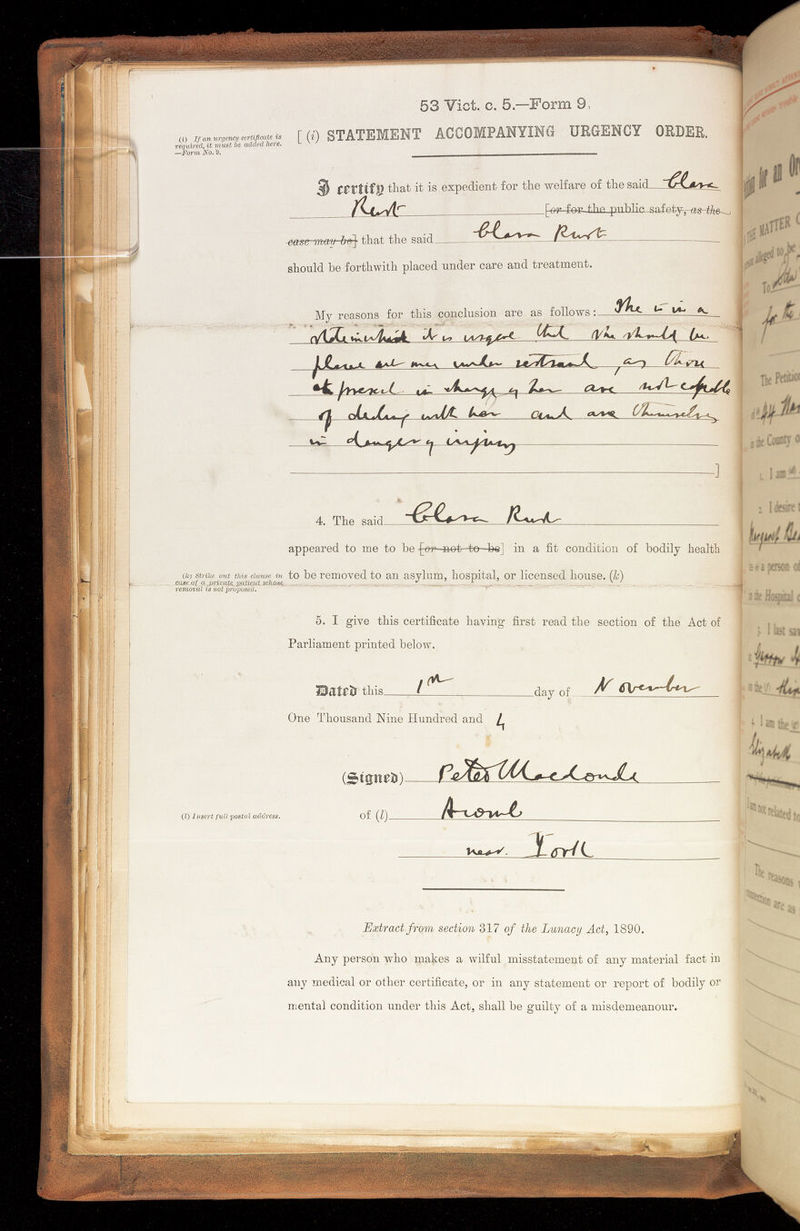 53 Vict. c. 5.—Form 9.
(i) If an urgency certificate is
required, it must be added here.
—Form No. 9.
[ (i) STATEMENT ACCOMPANYING URGENCY ORDER.
I certify that it is expedient for the welfare of the said Clara
Rust [or for the public safety, as the
case may be] that the said Clara Rust
should be forthwith placed under care and treatment.
My reasons for this conclusion are as follows: She is in a
state in which it is urgent that she should be
placed under restraint, as those
at present in charge of her are not capable
of dealing with her and are themselves
in danger of injury
]
4. The said Clara Rust
appeared to me to be [or not to be] in a fit condition of bodily health
(k) Strike out this clause in
case of a private patient whose
removal is not proposed.
to be removed to an asylum, hospital, or licensed house. (k)
5. I give this certificate having first read the section of the Act of
Parliament printed below.
Dated this 1st day of November
One Thousand Nine Hundred and 4
(Signed) Peter Macdonald
(l) Insert full postal address.
of (l)
near York
Extract from section 317 of the Lunacy Act, 1890.
Any person who makes a wilful misstatement of any material fact in
any medical or other certificate, or in any statement or report of bodily or
mental condition under this Act, shall be guilty of a misdemeanour.
THE MATTER
alleged to be
To
The Petition
in the County o
1. I am
2. I desire t
a person of
the Hospital
3. I last saw
in the
4. I am the
I am not related to
The reasons
are as